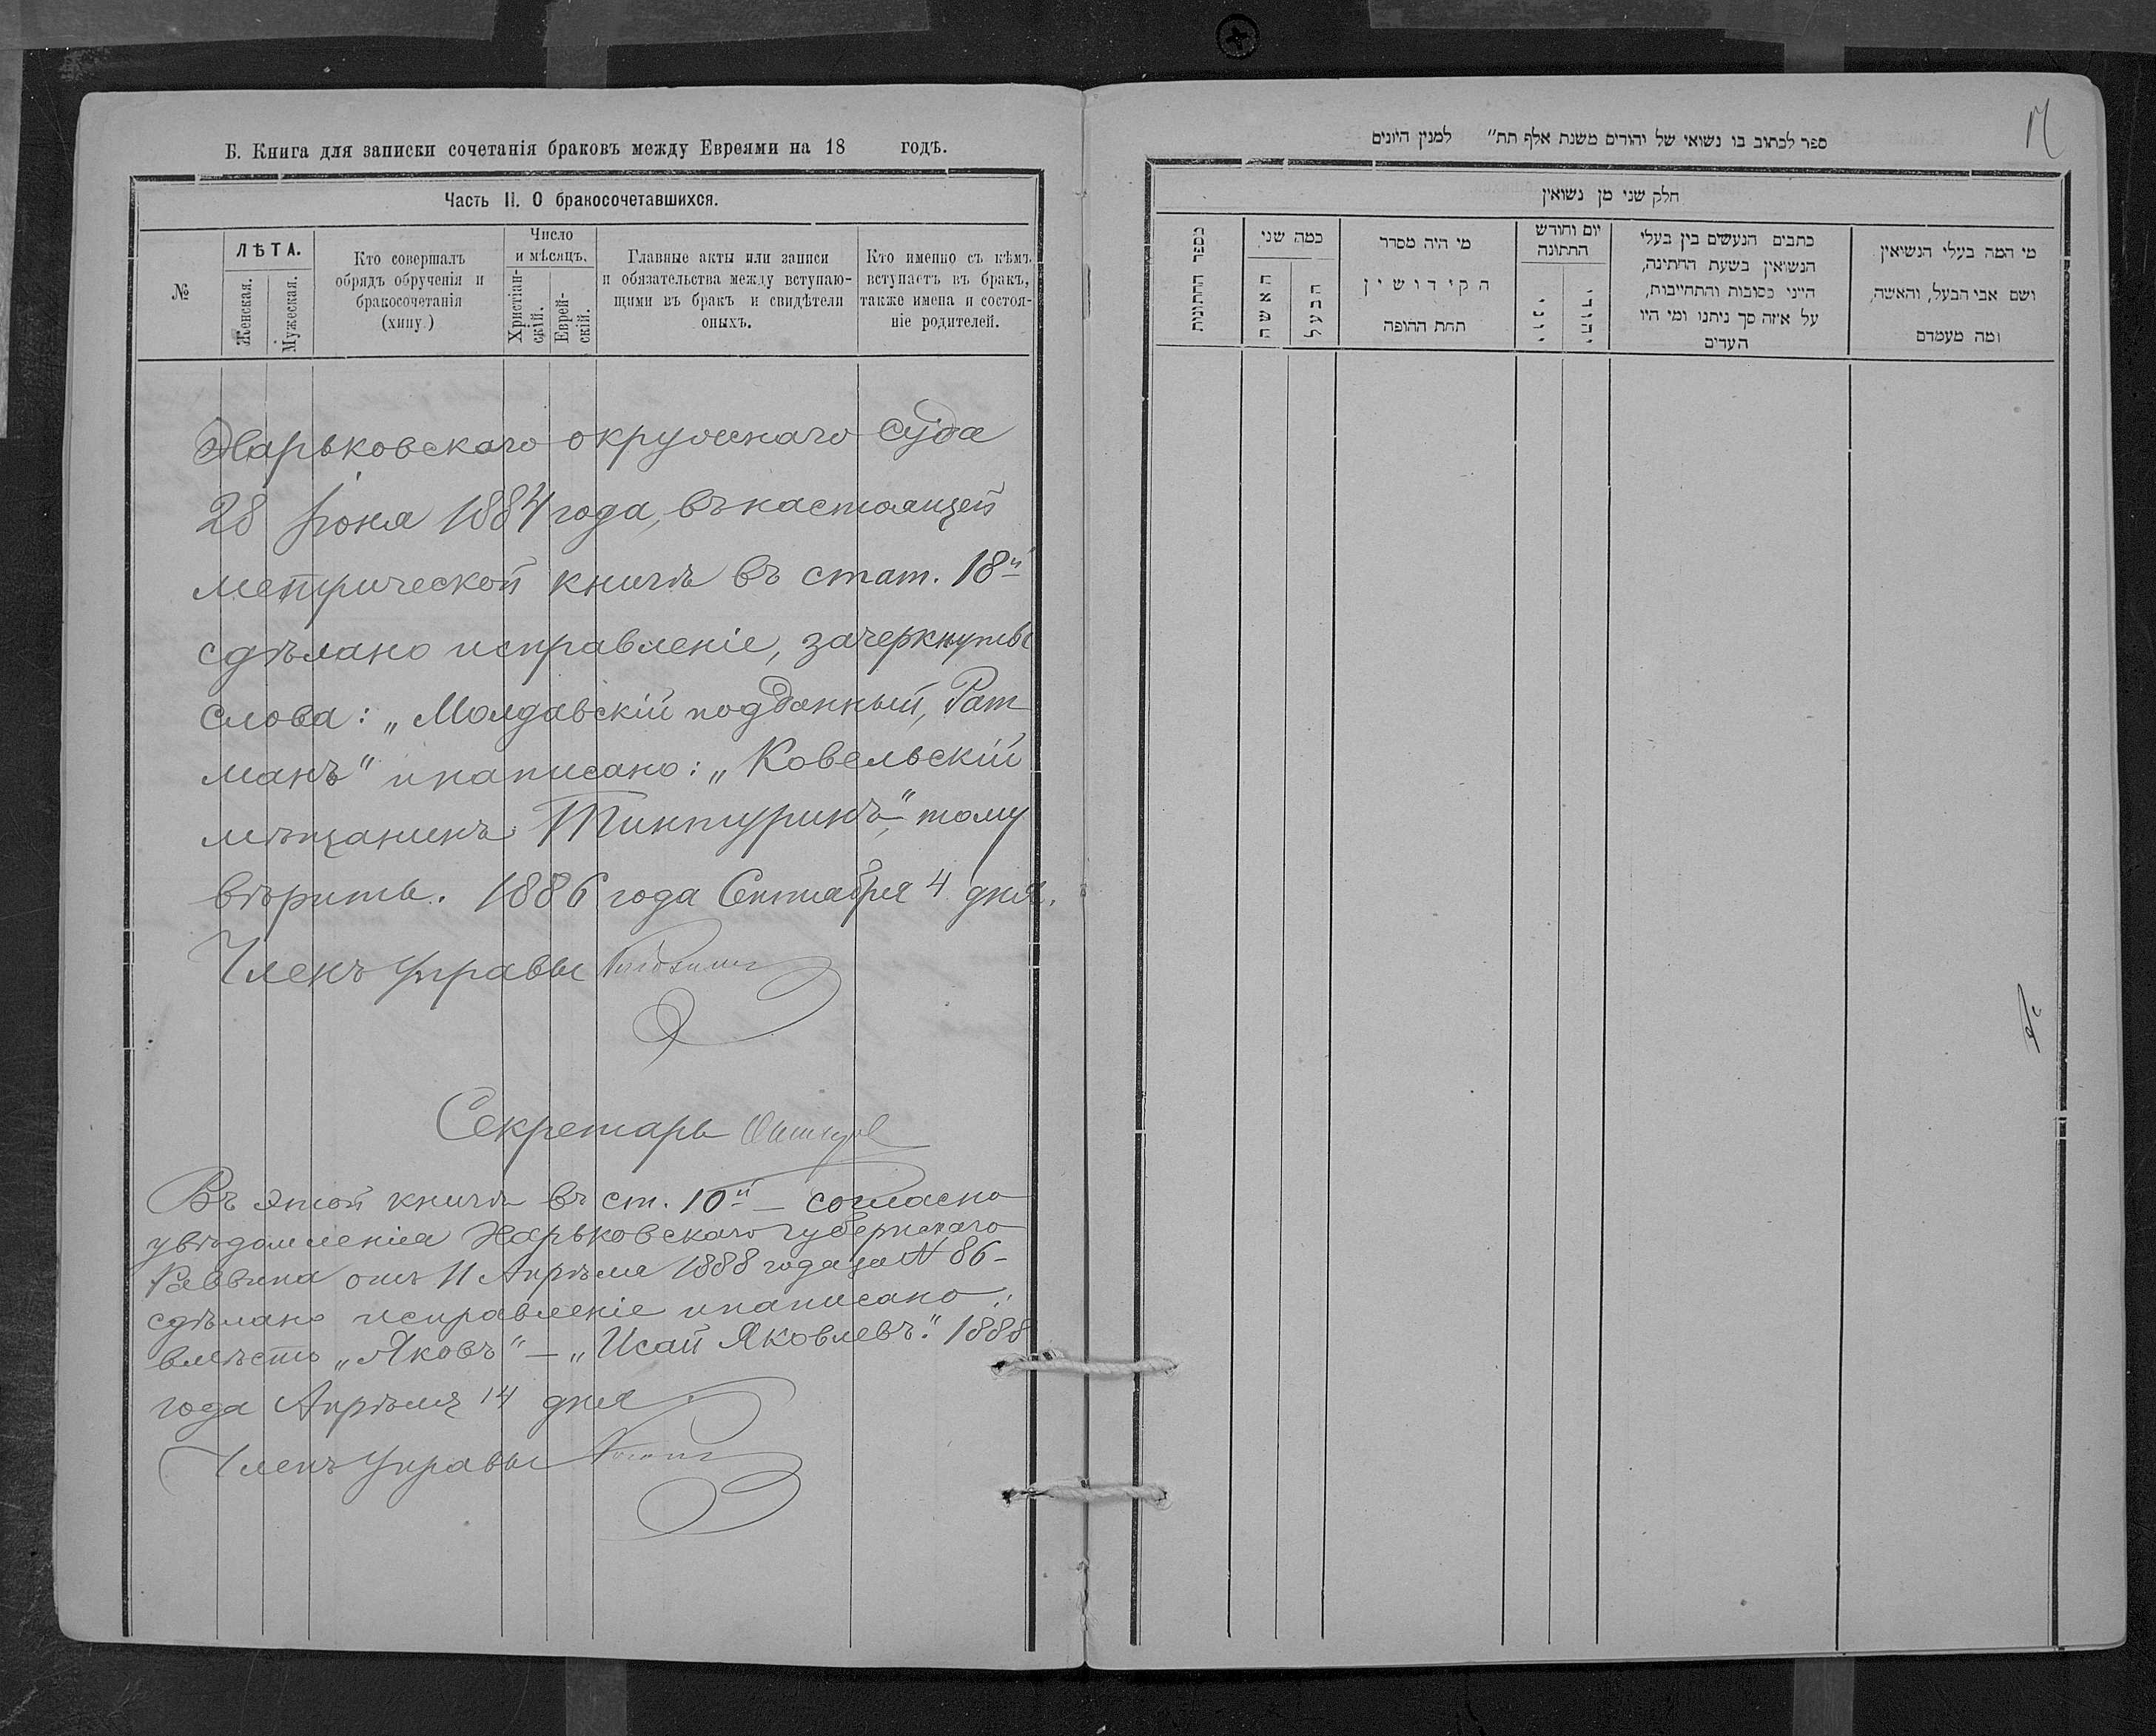 Б. Книга для записки сочетанія браковъ между Евреями на 18 годъ.
Часть II. О бракосочетавшихся.
№
ЛѢТА.
Женская.
Мужеская.
Кто совершалъ
обрядъ обрученія и
бракосочетанія
(хипу.)
Число
и мѣсяцъ.
Христіан-
скій.
Еврей-
скій.
Главные акты или записи
и обязательства между вступаю-
щими въ бракъ и свидѣтели
оныхъ.
Кто именно съ кѣмъ
вступаетъ въ бракъ,
также имена и состоя-
ніе родителей.
Харьковскаго окружнаго Суда
28 Іюня 1884 года, въ настоящей
метрической книгѣ въ стат. 18й
сдѣлано исправленіе, зачеркнуты
слова: „Молдавскій подданный, Рат
манъ" и написано: „Ковельскій
мѣщанинъ Тинтуринъ", тому
вѣрить. 1886 года Сентября 4 дня.
Членъ Управы
Секретарь
Въ этой книгѣ въ ст. 10й — согласно
увѣдомленія Харьковскаго Губернскаго
Раввина отъ 11 Апрѣля 1888 года за № 86 –
сдѣлано исправленіе и написано:
вмѣсто „Яковъ" — „Исай Яковлевъ". 1888
года Апрѣля 14 дня
Членъ Управы
ספר לכתוב בו נשואי של יהודים משנת אלף תת״ למנין היונים
חלק שני מן נשואין
מספר החתונות
כמה שני
האשה
הבעל
מי היה מסדר
הקידושין
תחת החופה
יום וחודש
החתונה
יוני
יהודי
כתבים הנעשים בין בעלי
הנשואין בשעת החתונה,
היינו כתובות והתחייבות,
על איזה סך ניתנו ומי היו
העדים
מי המה בעלי הנשיאין
ושם אבי הבעל, והאשה,
ומה מעמדם